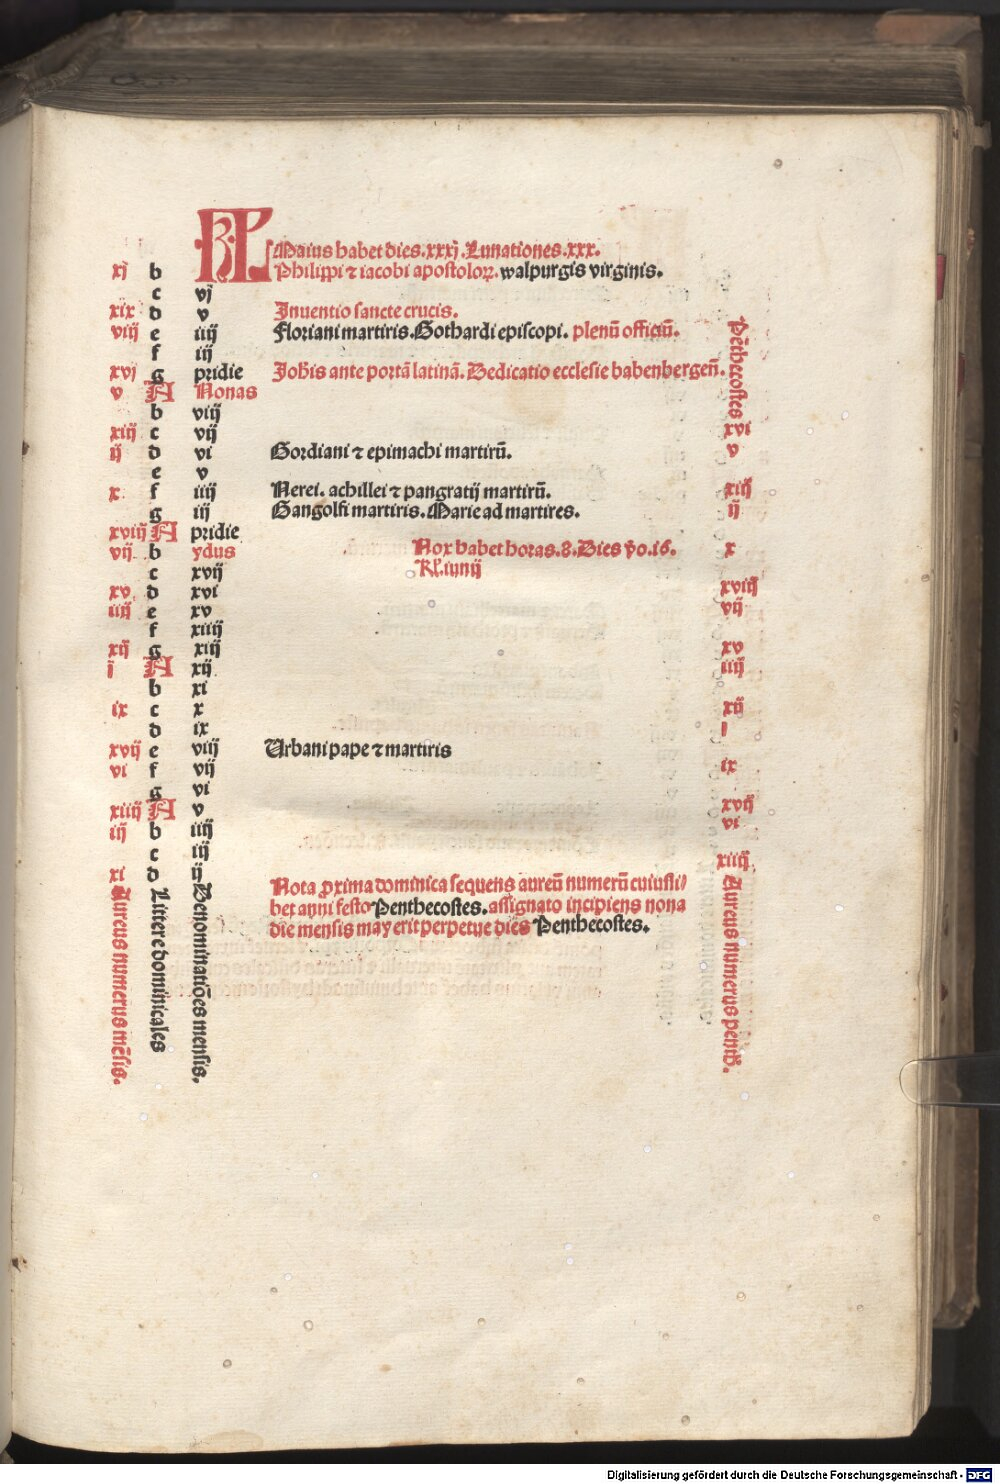 KL Maius habet dies.xxxj.Lunationes.xxx.
xj b Philippi ⁊ iacobi apostoloꝝ. walpurgis virginis.
c vj
xix d v Inuentio sancte crucis.
viij e iiij Floriani martiris.Gothardi episcopi. plenũ officiũ.
f iij
xvj g pridie Joħis ante portã latinã. Dedicatio ecclesie babenbergeñ.
v A Nonas
b viij
xiij c vij xvi
ij d vi Gordiani ⁊ epimachi martirũ. v
e v
x f iiij Nerei. achillei ⁊ pangratij martirũ. xiij
g iij Gangolfi martiris. Marie ad martires. ij
xviij A pridie
vij b ydus Nox habet horas.8.Dies ṽo.16. x
c xvij Kł.iunij
xv d xvi xviij
iiij e xv vij
f xiiij
xij g xiij xv
i A xij iiij
b xi
ix c x xij
d ix i
xvij e viij Urbani pape ⁊ martiris
vi f vij ix
g vi
xiiij A v xvij
iij b iiij vi
c iij
xi d ij xiiij
Penthecostes
Nota ꝓxima dominica sequens aureũ numerũ cuiusli/
bet anni festo Penthecostes. assignato incipiens nona
die mensis may erit perpetue dies Penthecostes.
Aureus numerus mẽsis.
Littere dominicales
Denominatiões mensis.
Aureus numerus pentħ.
Digitalisierung gefördert durch die Deutsche Forschungsgemeinschaft - DFG